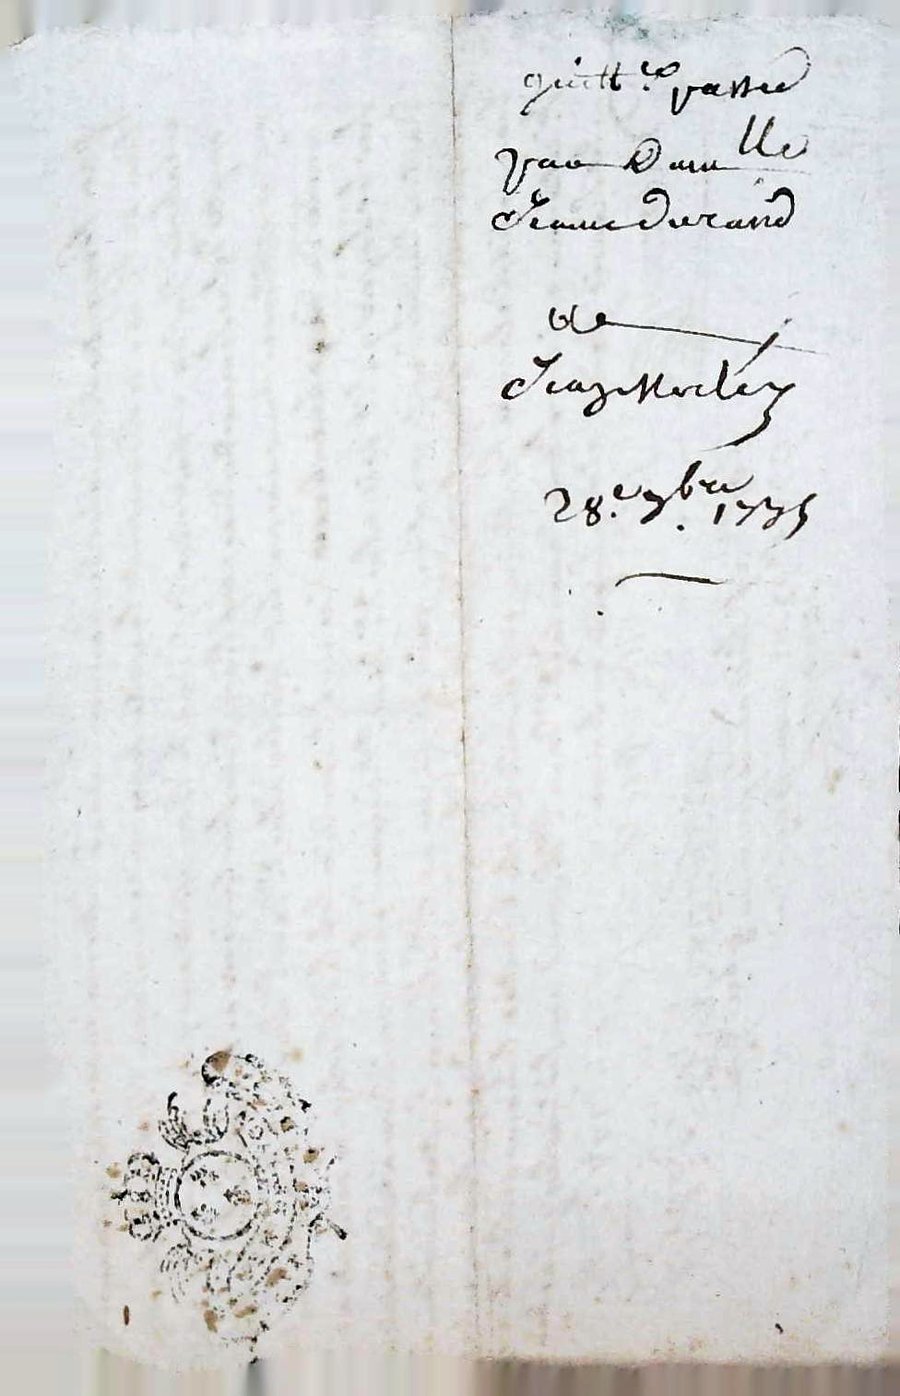 quitt.ce passée
par Damlle
Jeanne durand
de
Jean
28.e 7.bre 1775